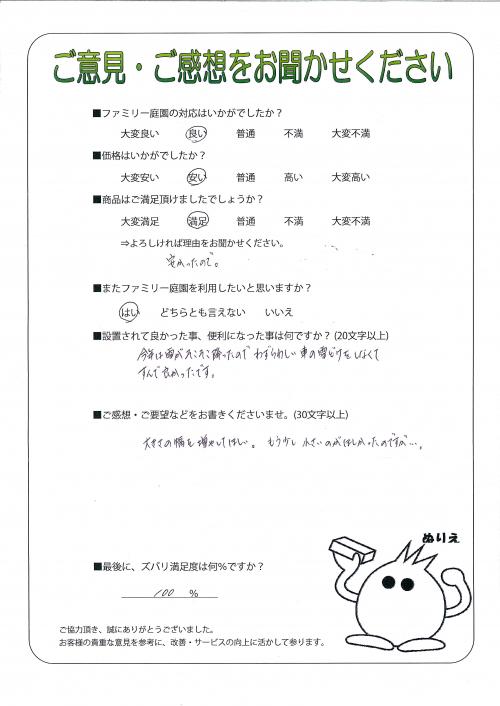 ご意見・ご感想をお聞かせください
■ファミリー庭園の対応はいかがでしたか？
大変良い 良い 普通 不満 大変不満
■価格はいかがでしたか？
大変安い 安い 普通 高い 大変高い
■商品はご満足頂けましたでしょうか？
大変満足 満足 普通 不満 大変不満
⇒よろしければ理由をお聞かせください。
安かったので。
■またファミリー庭園を利用したいと思いますか？
はい どちらとも言えない いいえ
■設置されて良かった事、便利になった事は何ですか？(20文字以上)
今年は雪がそこそこ降ったので わずらわしい 車の雪どけをしなくて
すんで良かったです。
■ご感想・ご要望などをお書きくださいませ。(30文字以上)
大きさの幅を増やしてほしい。 もう少し 小さいのがほしかったのですが…。
ぬりえ
■最後に、ズバリ満足度は何％ですか？
100 %
ご協力頂き、誠にありがとうございました。
お客様の貴重な意見を参考に、改善・サービスの向上に活かして参ります。